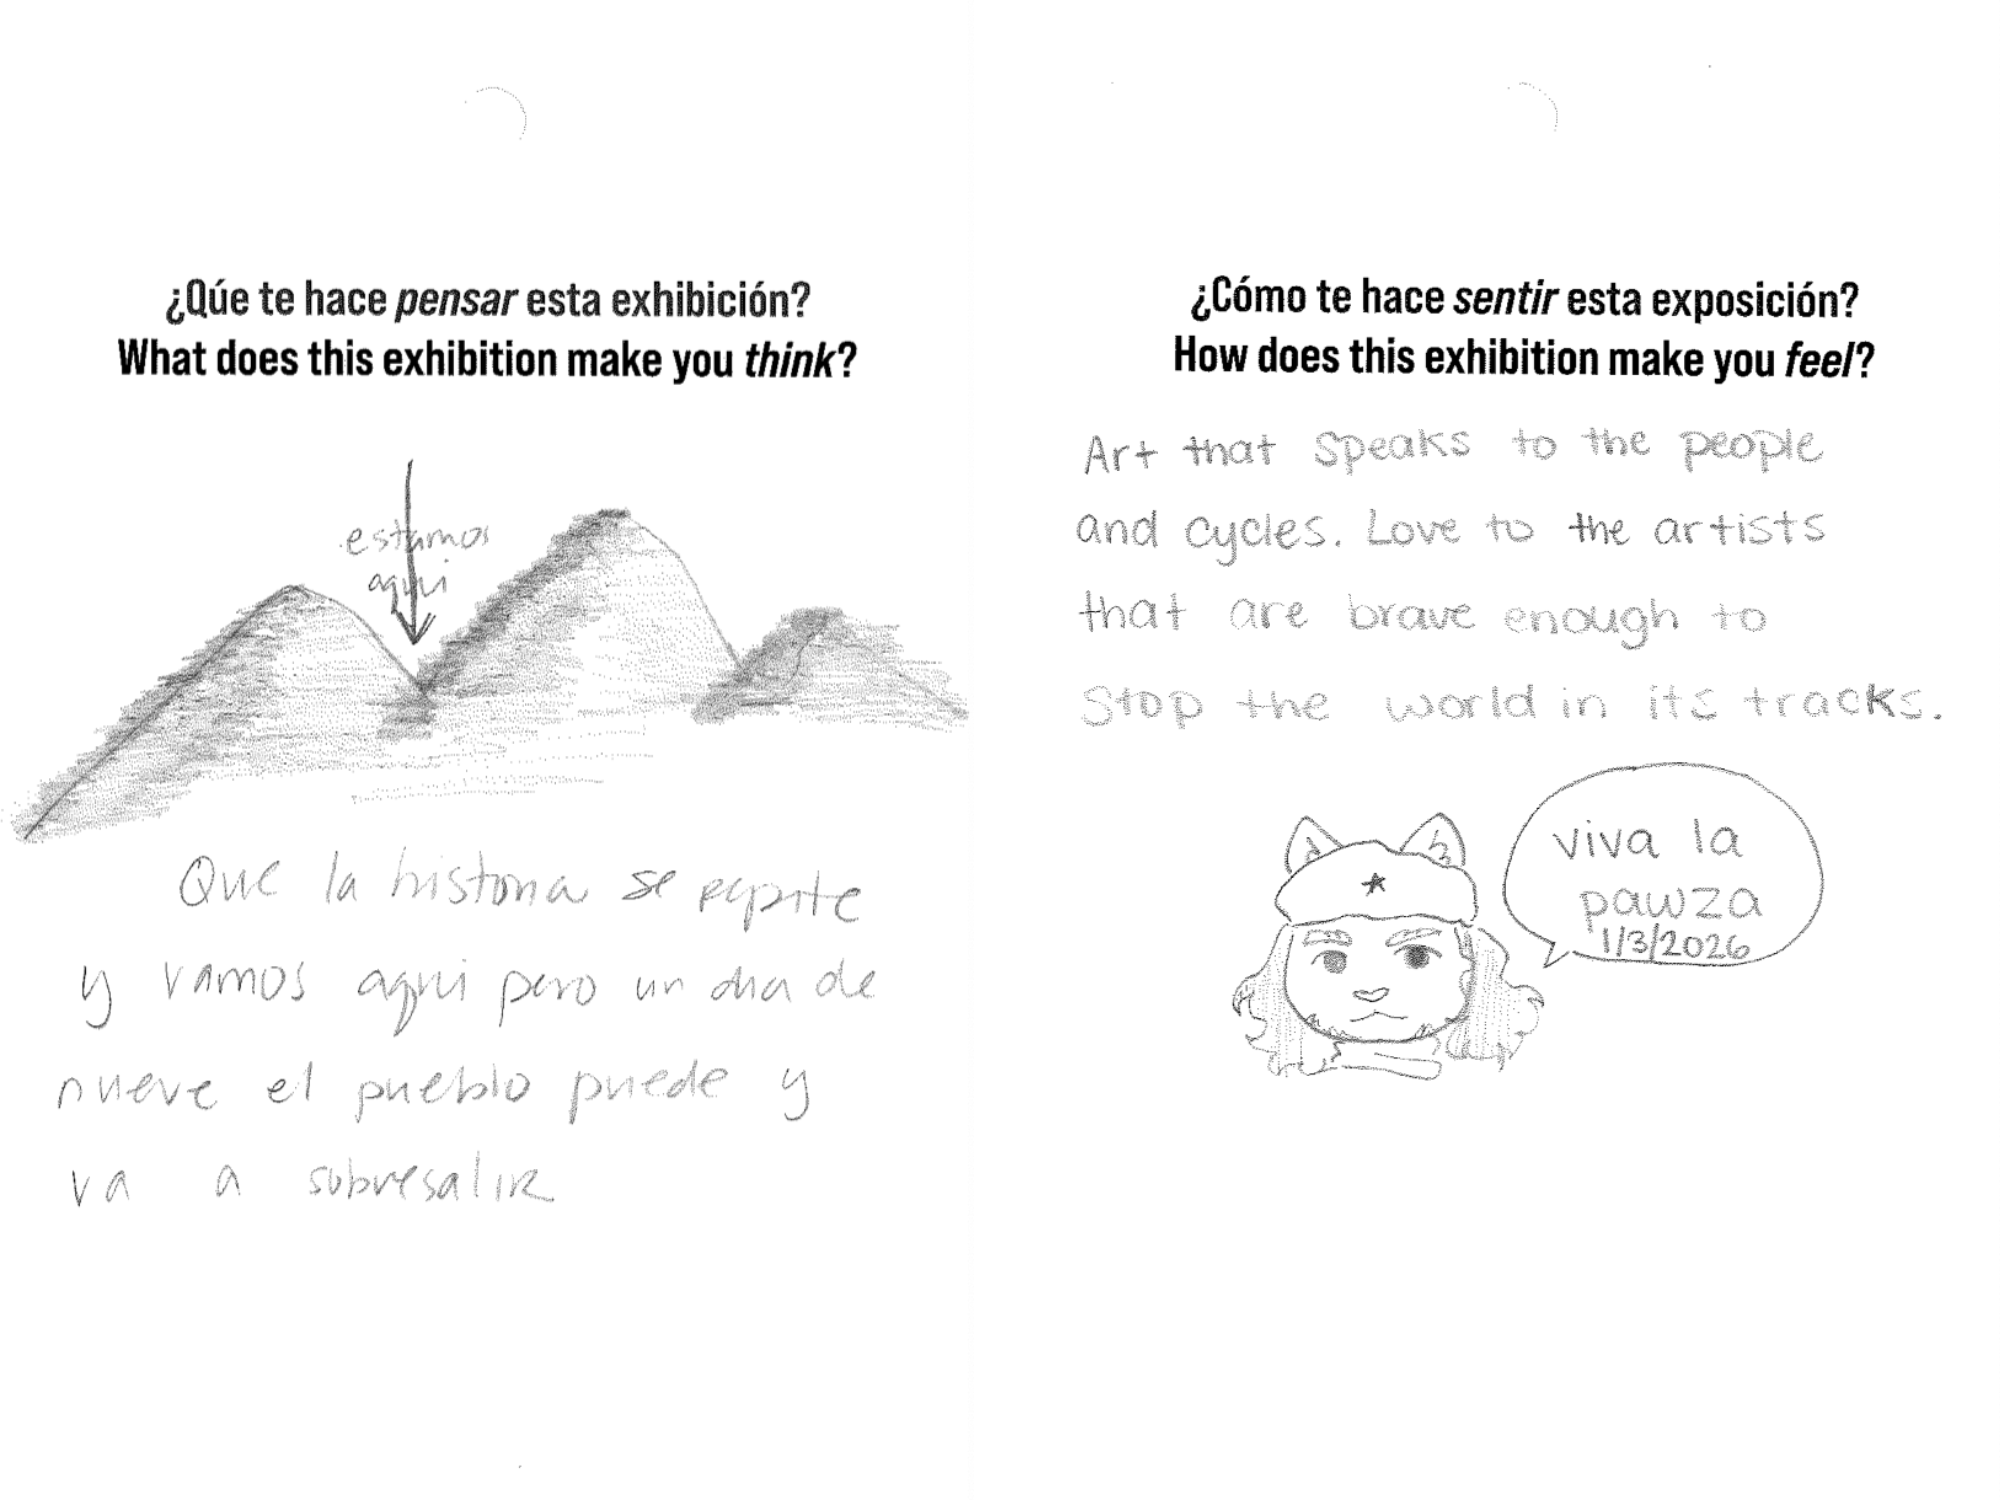 ¿Qúe te hace pensar esta exhibición?
What does this exhibition make you think?
estamos
aqui
Que la historia se repite
y vamos aqui pero un dia de
nueve el pueblo puede y
va a sobresalir
¿Cómo te hace sentir esta exposición?
How does this exhibition make you feel?
Art that speaks to the people
and cycles. Love to the artists
that are brave enough to
stop the world in its tracks.
viva la
pawza
1/3/2026